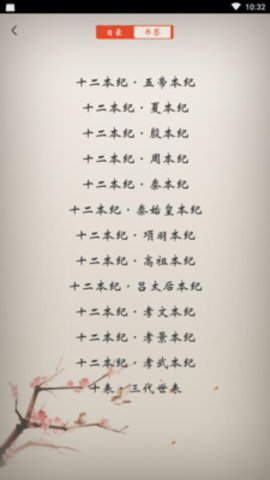 10:32
目录 书签
十二本纪·五帝本纪
十二本纪·夏本纪
十二本纪·殷本纪
十二本纪·周本纪
十二本纪·秦本纪
十二本纪·秦始皇本纪
十二本纪·项羽本纪
十二本纪·高祖本纪
十二本纪·吕太后本纪
十二本纪·孝文本纪
十二本纪·孝景本纪
十二本纪·孝武本纪
十表·三代世表